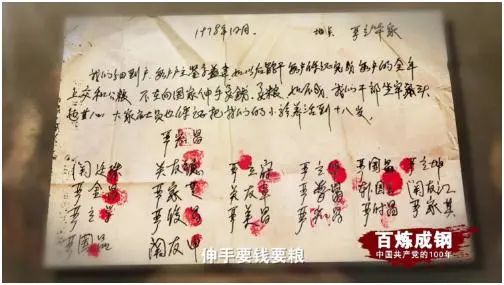 1978年12月. 地点 严立华家
我们分田到户 每户户主签字盖章 如以后能干 每户保证完成每户的全年
上交和公粮 不在向国家伸手要钱要粮 如不成 我们干部坐牢杀头
也甘心 大家社员也保证把我们的小孩养活到十八岁
严宏昌
关廷珠 关友德 严立富 严立华 严国昌 严立坤
严金昌 严家芝 关友章 严学昌 韩国云 关友江
严立学 严俊昌 严美昌 严付昌 严家其
严国品 关友申
伸手要钱要粮
百炼成钢
中国共产党的100年